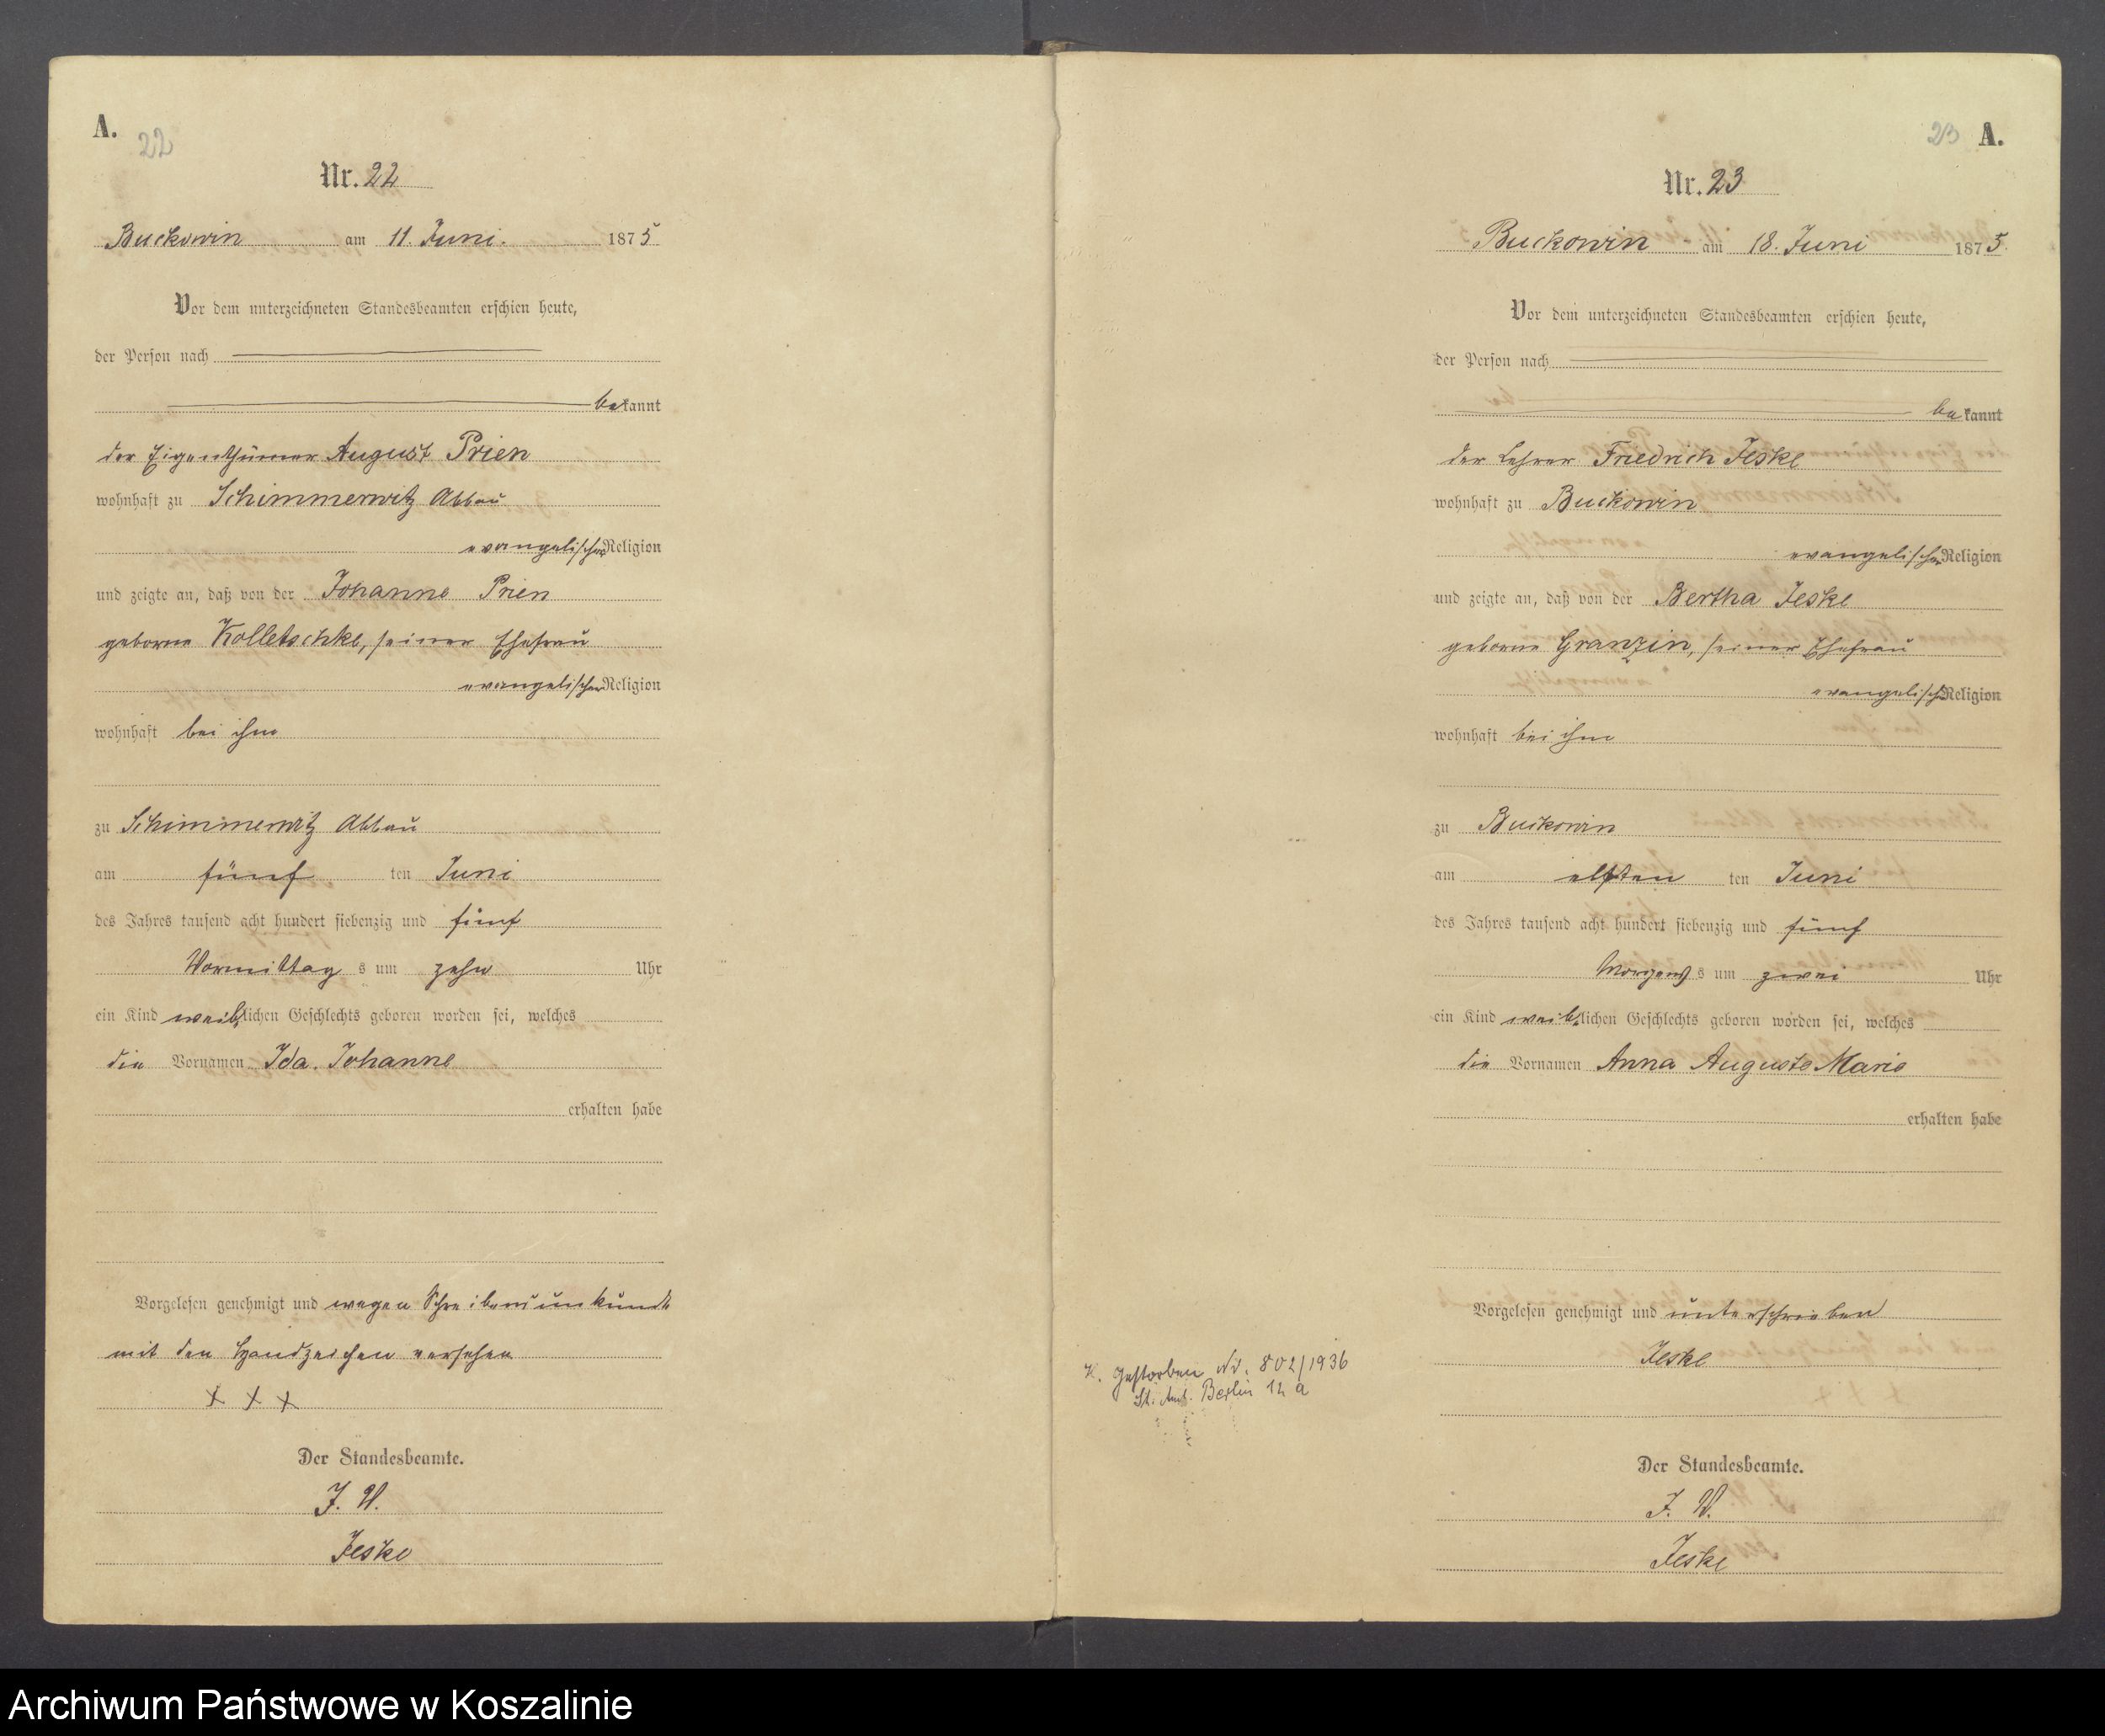 A.
22
Nr. 22
Buckowin am 11. Juni. 1875
Vor dem unterzeichneten Standesbeamten erschien heute,
der Person nach
bekannt
der Eigenthümer August Prien
wohnhaft zu Schimmerwitz Abbau
evangelischer Religion
und zeigte an, daß von der Johanne Prien
geborne Kolletschke, seiner Ehefrau
evangelischer Religion
wohnhaft bei ihm
zu Schimmerwitz Abbau
am fünf ten Juni
des Jahres tausend acht hundert siebenzig und fünf
Vormittag s um zehn Uhr
ein Kind weiblichen Geschlechts geboren worden sei, welches
die Vornamen Ida. Johanne
erhalten habe
Vorgelesen genehmigt und wegen Schreibensunkunde
mit den Handzeichen versehen
+ + +
Der Standesbeamte.
J. V.
Jeske
23 A.
Nr. 23
Buckowin am 18. Juni 1875.
Vor dem unterzeichneten Standesbeamten erschien heute,
der Person nach
bekannt
der Lehrer Friedrich Jeske
wohnhaft zu Buckowin
evangelischer Religion
und zeigte an, daß von der Bertha Jeske
geborne Granzin, seiner Ehefrau
evangelisch Religion
wohnhaft bei ihm
zu Buckowin
am elften ten Juni
des Jahres tausend acht hundert siebenzig und fünf
Morgens s um zwei Uhr
ein Kind weiblichen Geschlechts geboren worden sei, welches
die Vornamen Anna Auguste Marie
erhalten habe
Vorgelesen genehmigt und unterschrieben
Jeske
Der Standesbeamte.
J. V.
Jeske
gestorben Nr. 802/1936
St. Amt. Berlin 12 a
Archiwum Państwowe w Koszalinie